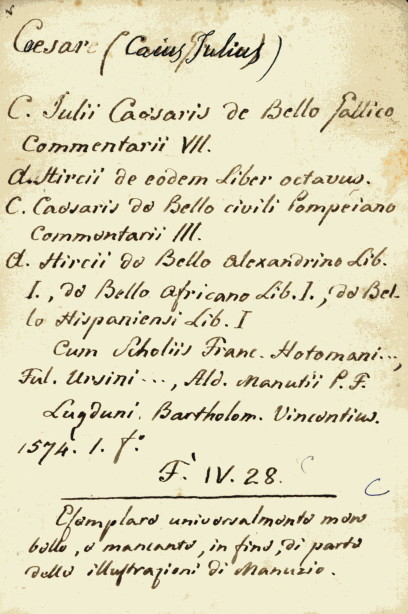 Cesare (Caius Julius)
C. Julii Caesaris de Bello Gallico
Commentarii VII.
A. Hircii de eodem Liber octavus.
C. Caesaris de Bello civili Pompeiano
Commentarii III.
A. Hircii de Bello Alexandrino Lib.
I., de Bello Africano Lib. I., de Bel-
lo Hispaniensi Lib. I
Cum Scholiis Franc. Hotomani...,
Ful. Ursini..., Ald. Manutii P. F.
Lugduni. Bartholom. Vincentius.
1574. 1. fº.
F. IV. 28.
C
Esemplare universalmente men
bello, e mancante, in fine, di parte
delle illustrazioni di Manuzio.